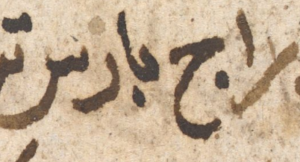 راج بارس